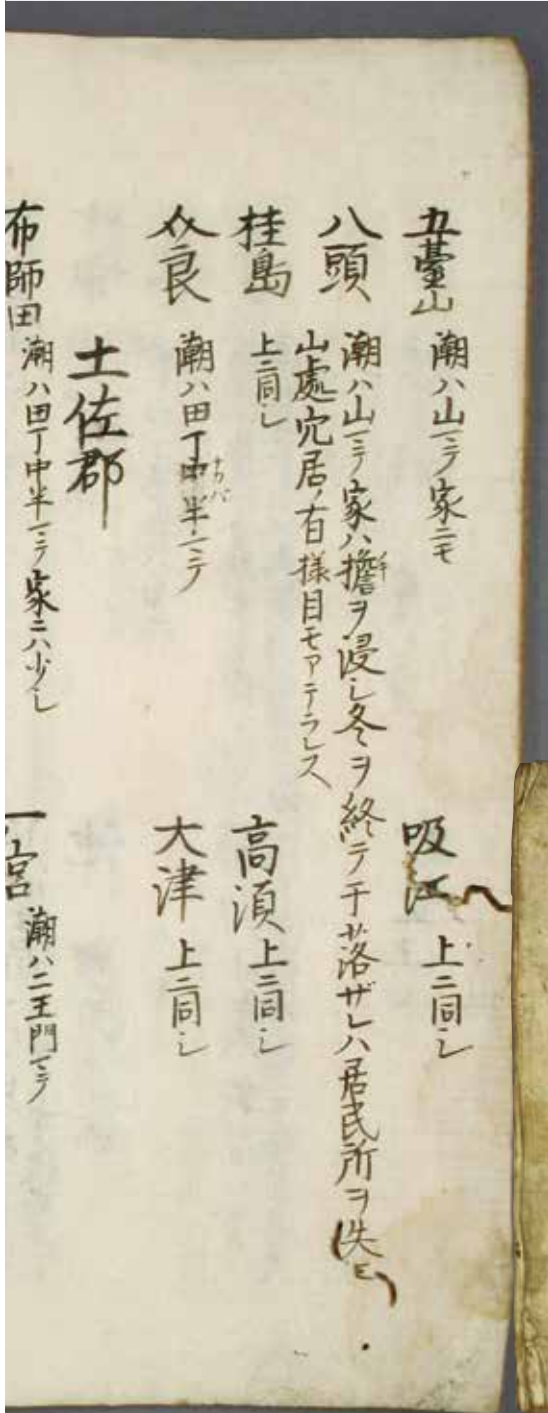 五臺山 潮ハ山マテ家ニモ 吸江 上ニ同シ
八頭 潮ハ山マテ家ハ檐ヲ浸シ冬ヲ終テ干落ザレハ居民所ヲ失ヒ
山處穴居ノ有様目モアテラレス
桂島 上ニ同シ 高須 上ニ同シ
介良 潮ハ田丁中半マテ 大津 上ニ同シ
土佐郡
布師田 潮ハ田丁中半マテ家ニハ少シ 一宮 潮ハ二王門マテ